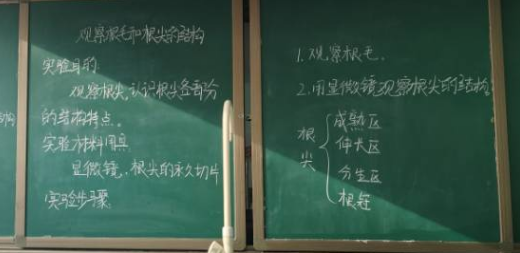 观察根毛和根尖的结构
实验目的
观察根尖,认识根尖各部分
的结构特点。
实验材料用具
显微镜,根尖的永久切片
实验步骤
1.观察根毛.
2.用显微镜观察根尖的结构
根尖
成熟区
伸长区
分生区
根冠